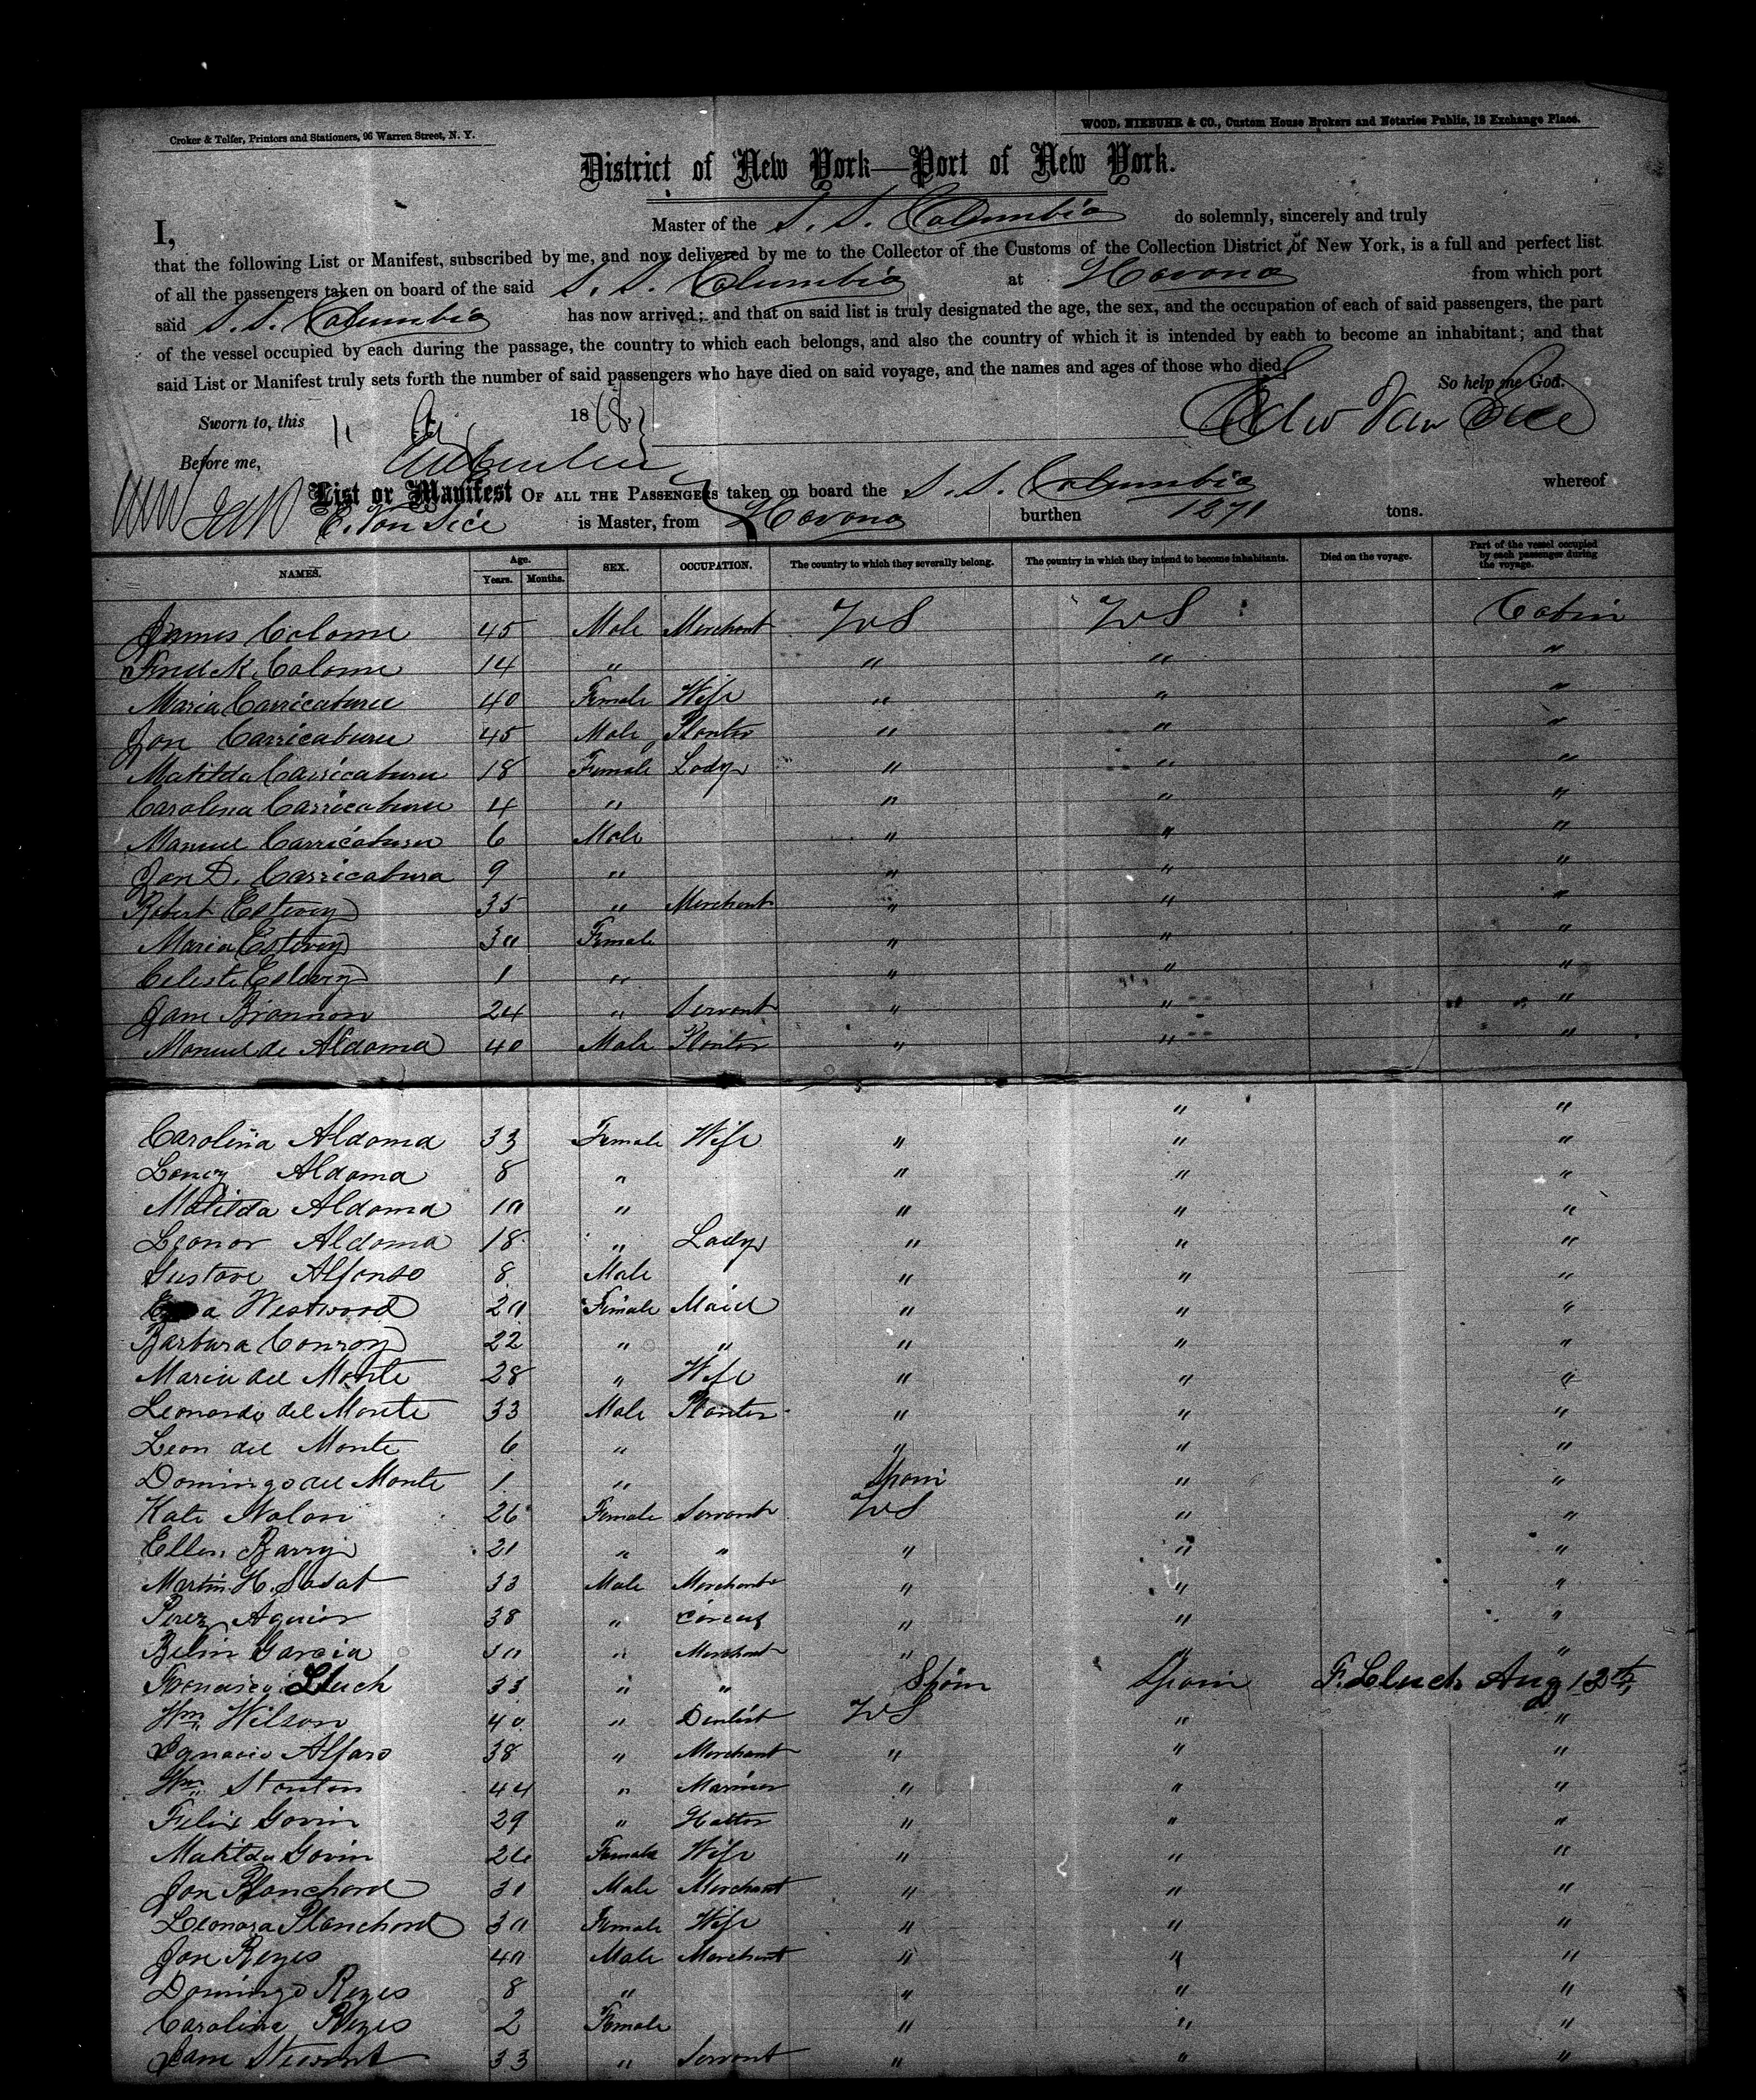 Croker & Telfer, Printers and Stationers, 96 Warren Street, N. Y.
WOOD, NIEBUHR & CO., Custom House Brokers and Notaries Public, 18 Exchange Place.
District of New York—Port of New York.
I, Master of the S. S. Columbia do solemnly, sincerely and truly
that the following List or Manifest, subscribed by me, and now delivered by me to the Collector of the Customs of the Collection District of New York, is a full and perfect list
of all the passengers taken on board of the said S. S. Columbia at Havana from which port
said S. S. Columbia has now arrived; and that on said list is truly designated the age, the sex, and the occupation of each of said passengers, the part
of the vessel occupied by each during the passage, the country to which each belongs, and also the country of which it is intended by each to become an inhabitant; and that
said List or Manifest truly sets forth the number of said passengers who have died on said voyage, and the names and ages of those who died.
So help me God.
Sworn to, this 11 1868 Edw Van Sice
Before me,
List or Manifest OF ALL THE PASSENGERS taken on board the S. S. Columbia whereof
E. Van Sice is Master, from Havana burthen 1271 tons.
NAMES. Age. Years. Months. SEX. OCCUPATION. The country to which they severally belong. The country in which they intend to become inhabitants. Died on the voyage. Part of the vessel occupied by each passenger during the voyage.
James Colome 45 Male Merchant US US Cabin
Fredk Colome 14 " " " "
Maria Carricaburu 40 Female Wife " " "
Jon Carricaburu 45 Male Planter " " "
Matilda Carricaburu 18 Female Lady " " "
Carolina Carricaburu 4 " " " "
Manuel Carricaburu 6 Male " " "
Jon D. Carricabura 9 " " " "
Robert Estevez 35 " Merchant " " "
Maria Estevez 30 Female " " "
Celeste Estevez 1 " " " "
Jane Brannon 24 " Servant " " "
Manuel de Aldama 40 Male Planter " " "
" "
Carolina Aldama 33 Female Wife " " "
Aldama 8 " " " "
Matilda Aldama 10 " " " "
Leonor Aldama 18 " Lady " " "
Gustave Alfonso 8 Male " " "
Westwood 20 Female Maid " " "
Barbara Conroy 22 " " " " "
Maria del Monte 28 " Wife " " "
Leonardo del Monte 33 Male Planter " " "
Leon del Monte 6 " " " "
Domingo del Monte 1 " Spain " "
Kate Nolan 26 Female Servant US " "
Ellen Barry 21 " " " " "
Martin H. Sadat 33 Male Merchant " " "
Perez Aguiar 38 " Circus " " "
Belin Garcia 30 " Merchant " " "
Francisco Lluch 33 " " Spain Spain F. Lluch Aug 13th
Wm Wilson 40 " Dentist US " "
Ignacio Alfaro 38 " Merchant " " "
Wm Stanton 44 " Mariner " " "
Felix Govin 29 " Hatter " " "
Matilda Govin 26 Female Wife " " "
Jon Planchard 31 Male Merchant " " "
Leonora Planchard 30 Female Wife " " "
Jon Reyes 40 Male Merchant " " "
Domingo Reyes 8 " " " "
Carolina Reyes 2 Female " " "
Jane Stewart 33 " Servant " " "